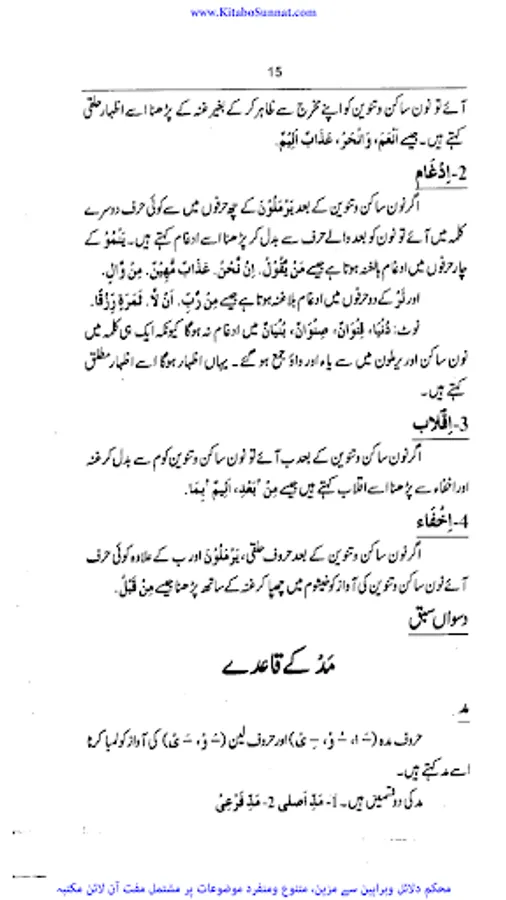 www.KitaboSunnat.com
15
آئے تو نون ساکن و تنوین کو اپنے مخرج سے ظاہر کر کے بغیر غنہ کے پڑھنا اسے اظہار حلقی
کہتے ہیں۔ جیسے اَنْعَمَ، وَانْحَرْ، عَذَابٌ اَلِیْمٌ۔
2-اِدْغَام
اگر نون ساکن و تنوین کے بعد یَرْمَلُوْنَ کے چھ حرفوں میں سے کوئی حرف دوسرے
کلمہ میں آئے تو نون کو بعد والے حرف سے بدل کر پڑھنا اسے ادغام کہتے ہیں۔ یَنْمُوْ کے
چار حرفوں میں ادغام بالغنہ ہوتا ہے جیسے مَنْ یَّقُوْلُ۔ اِنْ نَّحْنُ۔ عَذَابٌ مُّهِیْنٌ۔ مِنْ وَّالٍ۔
اور لَرْ کے دو حرفوں میں ادغام بلاغنہ ہوتا ہے جیسے مِنْ رَّبِّ۔ اَنْ لَّا۔ ثَمَرَةٍ رِّزْقًا۔
نوٹ: دُنْیَا، قِنْوَانٌ، صِنْوَانٌ، بُنْیَانٌ میں ادغام نہ ہوگا کیونکہ ایک ہی کلمہ میں
نون ساکن اور یرملون میں سے یاء اور واؤ جمع ہو گئے۔ یہاں اظہار ہوگا اسے اظہار مطلق
کہتے ہیں۔
3-اِقْلَاب
اگر نون ساکن و تنوین کے بعد ب آئے تو نون ساکن و تنوین کو م سے بدل کر غنہ
اور اخفاء سے پڑھنا اسے اقلاب کہتے ہیں جیسے مِنْۢ بَعْدِ، اَلِیْمٌۢ بِمَا۔
4-اِخْفَاء
اگر نون ساکن و تنوین کے بعد حروف حلقی، یَرْمَلُوْنَ اور ب کے علاوہ کوئی حرف
آئے نون ساکن و تنوین کی آواز کو خیشوم میں چھپا کر غنہ کے ساتھ پڑھنا جیسے مِنْ قَبْلُ۔
دسواں سبق
مَدّ کے قاعدے
مد
حروف مدہ (ـَ ا، ـُ وْ، ـِ یْ) اور حروف لین (ـَ وْ، ـَ یْ) کی آواز کو لمبا کرنا
اسے مد کہتے ہیں۔
مد کی دو قسمیں ہیں۔ 1- مَدِّ اَصلی 2- مَدِّ فَرْعِیْ
محکم دلائل وبراہین سے مزین، متنوع ومنفرد موضوعات پر مشتمل مفت آن لائن مکتبہ